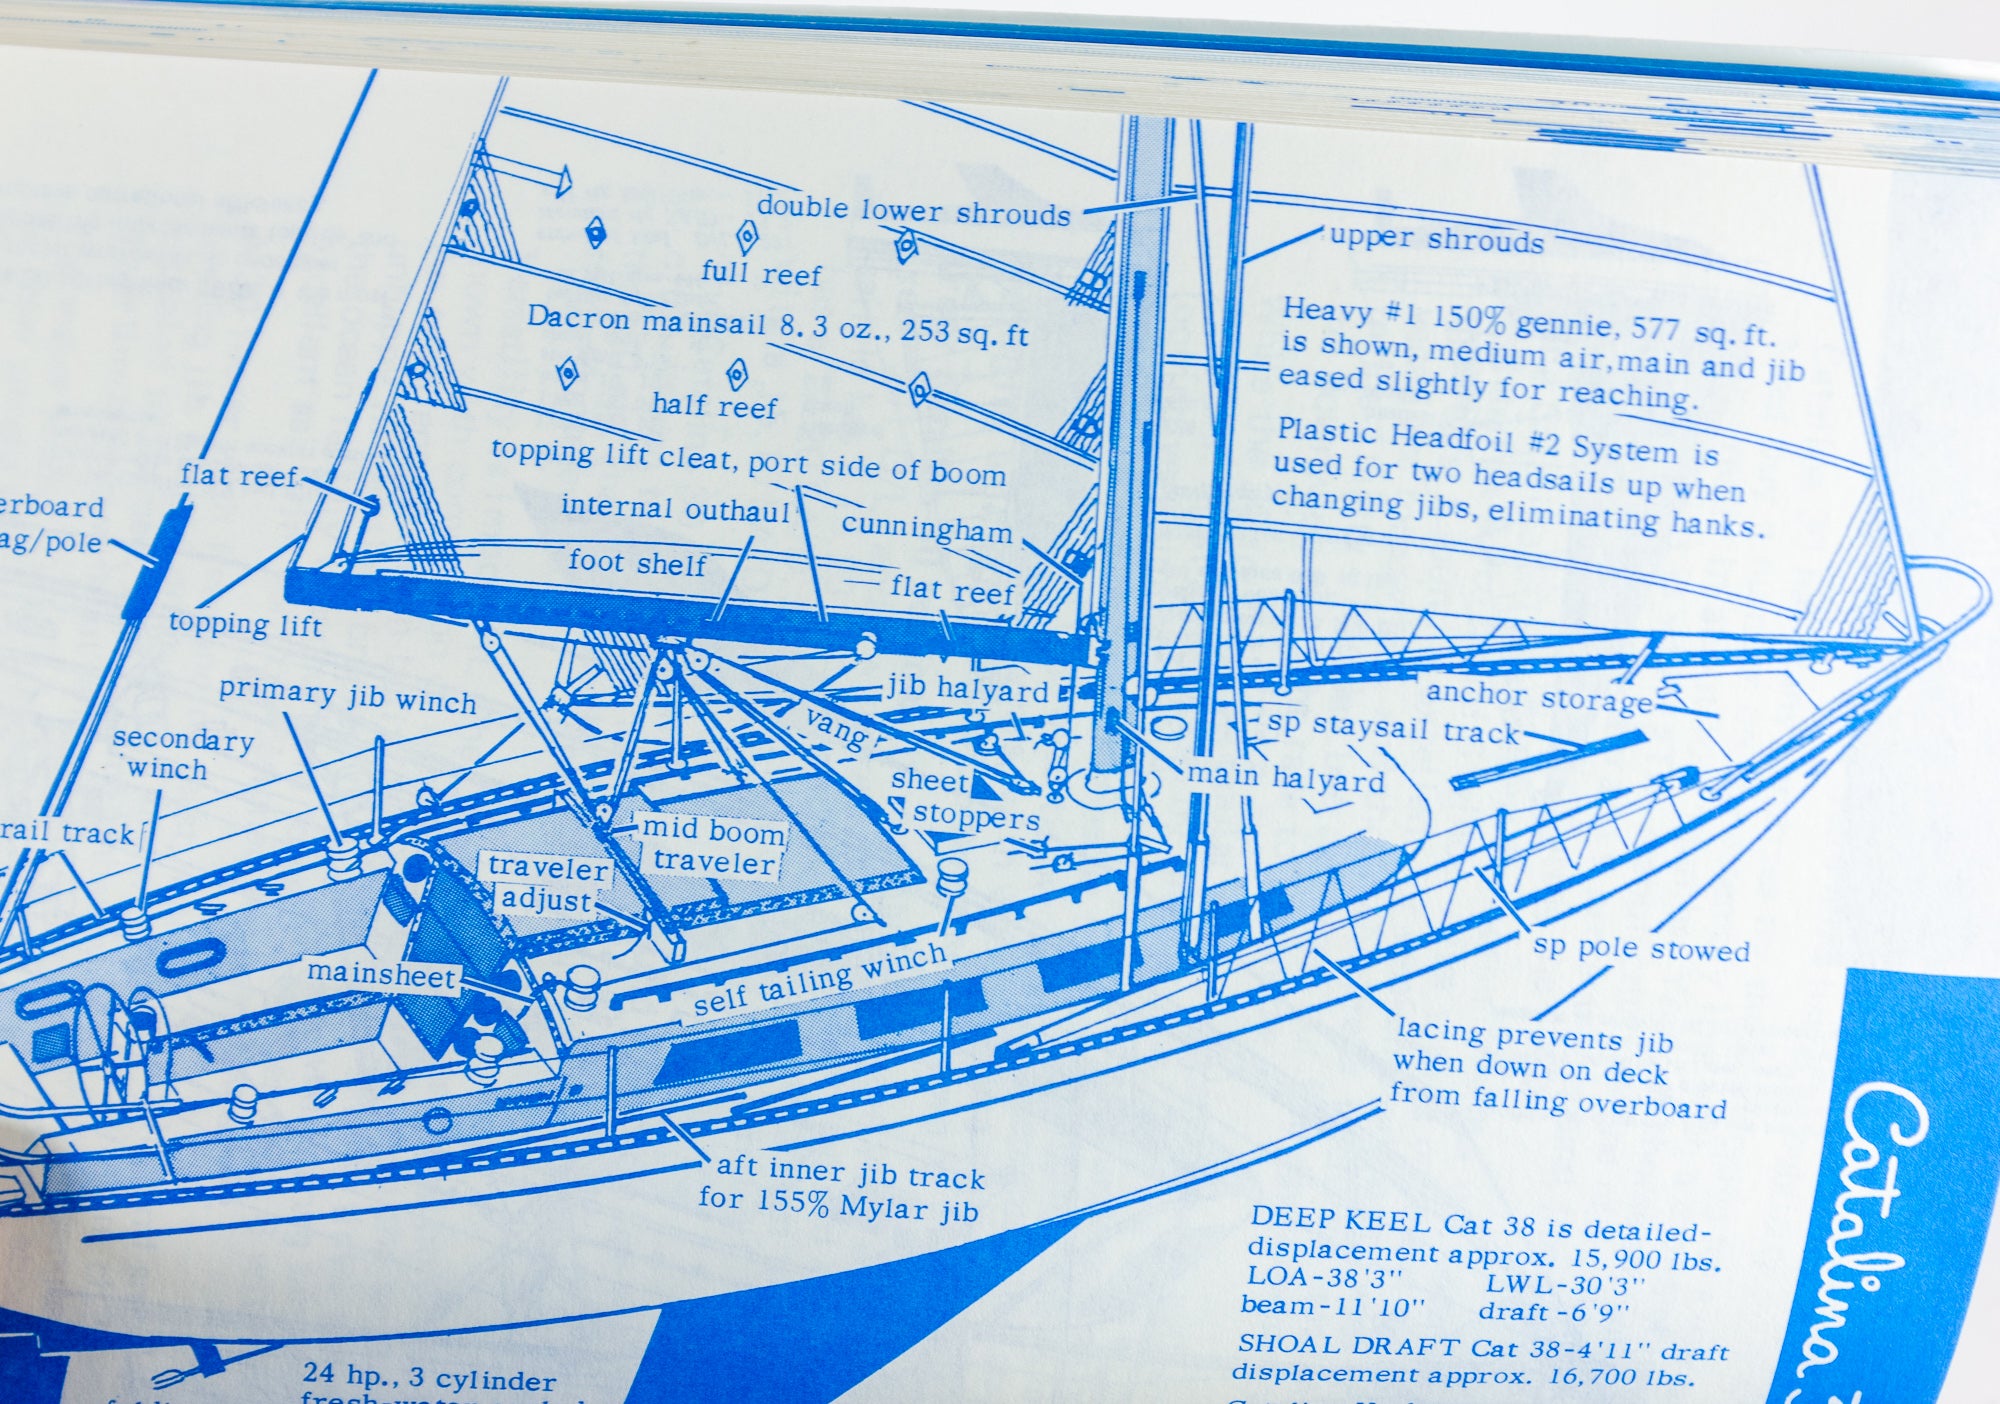 double lower shrouds
upper shrouds
full reef
Dacron mainsail 8.3 oz., 253 sq. ft
half reef
Heavy #1 150% gennie, 577 sq. ft.
is shown, medium air, main and jib
eased slightly for reaching.
Plastic Headfoil #2 System is
used for two headsails up when
changing jibs, eliminating hanks.
topping lift cleat, port side of boom
flat reef
internal outhaul
cunningham
erboard
ag/pole
foot shelf
flat reef
topping lift
primary jib winch
jib halyard
anchor storage
vang
sp staysail track
secondary
winch
main halyard
sheet
stoppers
rail track
mid boom
traveler
traveler
adjust
sp pole stowed
mainsheet
self tailing winch
lacing prevents jib
when down on deck
from falling overboard
aft inner jib track
for 155% Mylar jib
DEEP KEEL Cat 38 is detailed-
displacement approx. 15,900 lbs.
LOA-38'3" LWL-30'3"
beam-11'10" draft -6'9"
SHOAL DRAFT Cat 38-4'11" draft
displacement approx. 16,700 lbs.
24 hp., 3 cylinder
Catalina